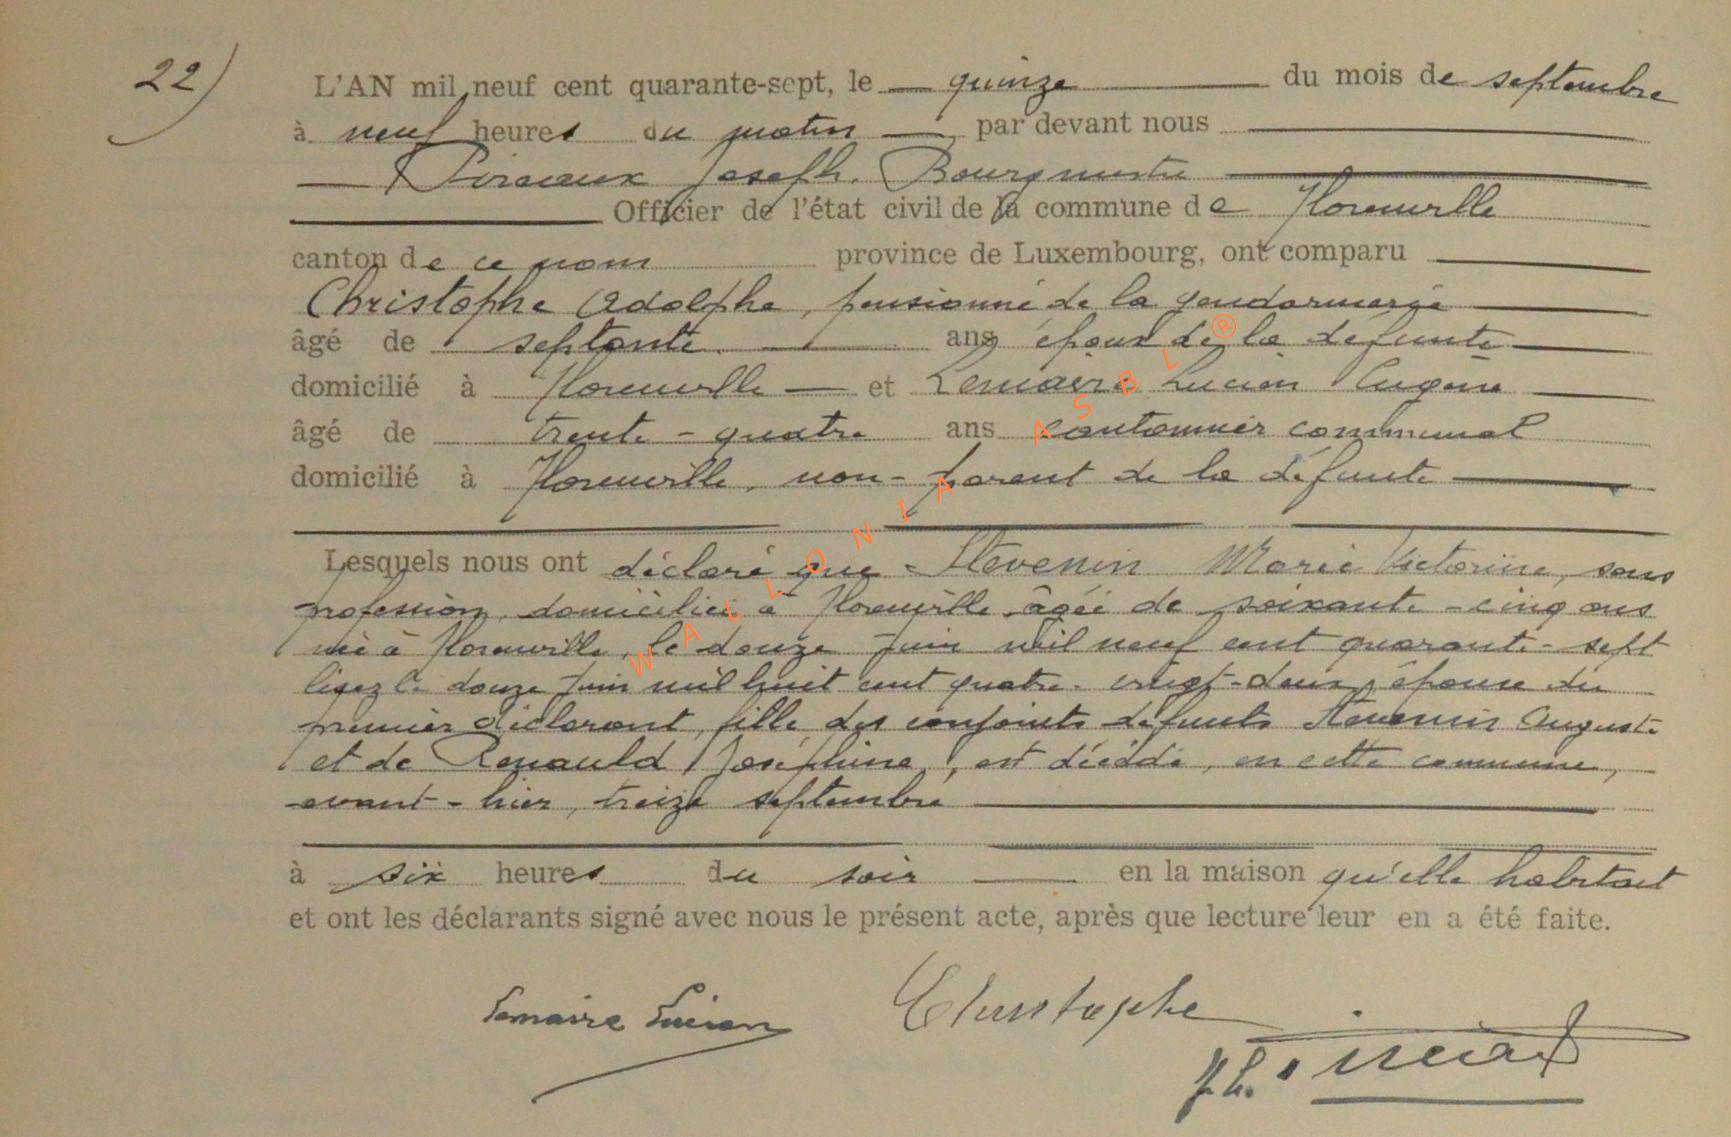 22)
L'AN mil neuf cent quarante-sept, le quinze du mois de septembre
à neuf heures du matin par devant nous
Joseph, Bourgmestre
Officier de l'état civil de la commune de Florenville
canton de ce nom province de Luxembourg, ont comparu
Christophe Adolphe, pensionné de la gendarmerie
âgé de septante ans époux de la défunte
domicilié à Florenville et Lemaire Lucien Eugène
âgé de trente-quatre ans cantonnier communal
domicilié à Florenville, non-parent de la défunte
Lesquels nous ont déclaré que Stevenin Marie Victorine, sans
profession, domiciliée à Florenville âgée de soixante-cinq ans
née à Florenville, le douze juin mil neuf cent quarante-sept
lisez le douze juin mil huit cent quatre-vingt-deux, épouse du
premier déclarant, fille des conjoints défunts Stevenin Auguste
et de Renauld Joséphine, est décédée, en cette commune,
avant-hier, treize septembre
à six heures du soir en la maison qu'elle habitait
et ont les déclarants signé avec nous le présent acte, après que lecture leur en a été faite.
Lemaire Lucien Christophe
WALLONIA ASBL ®